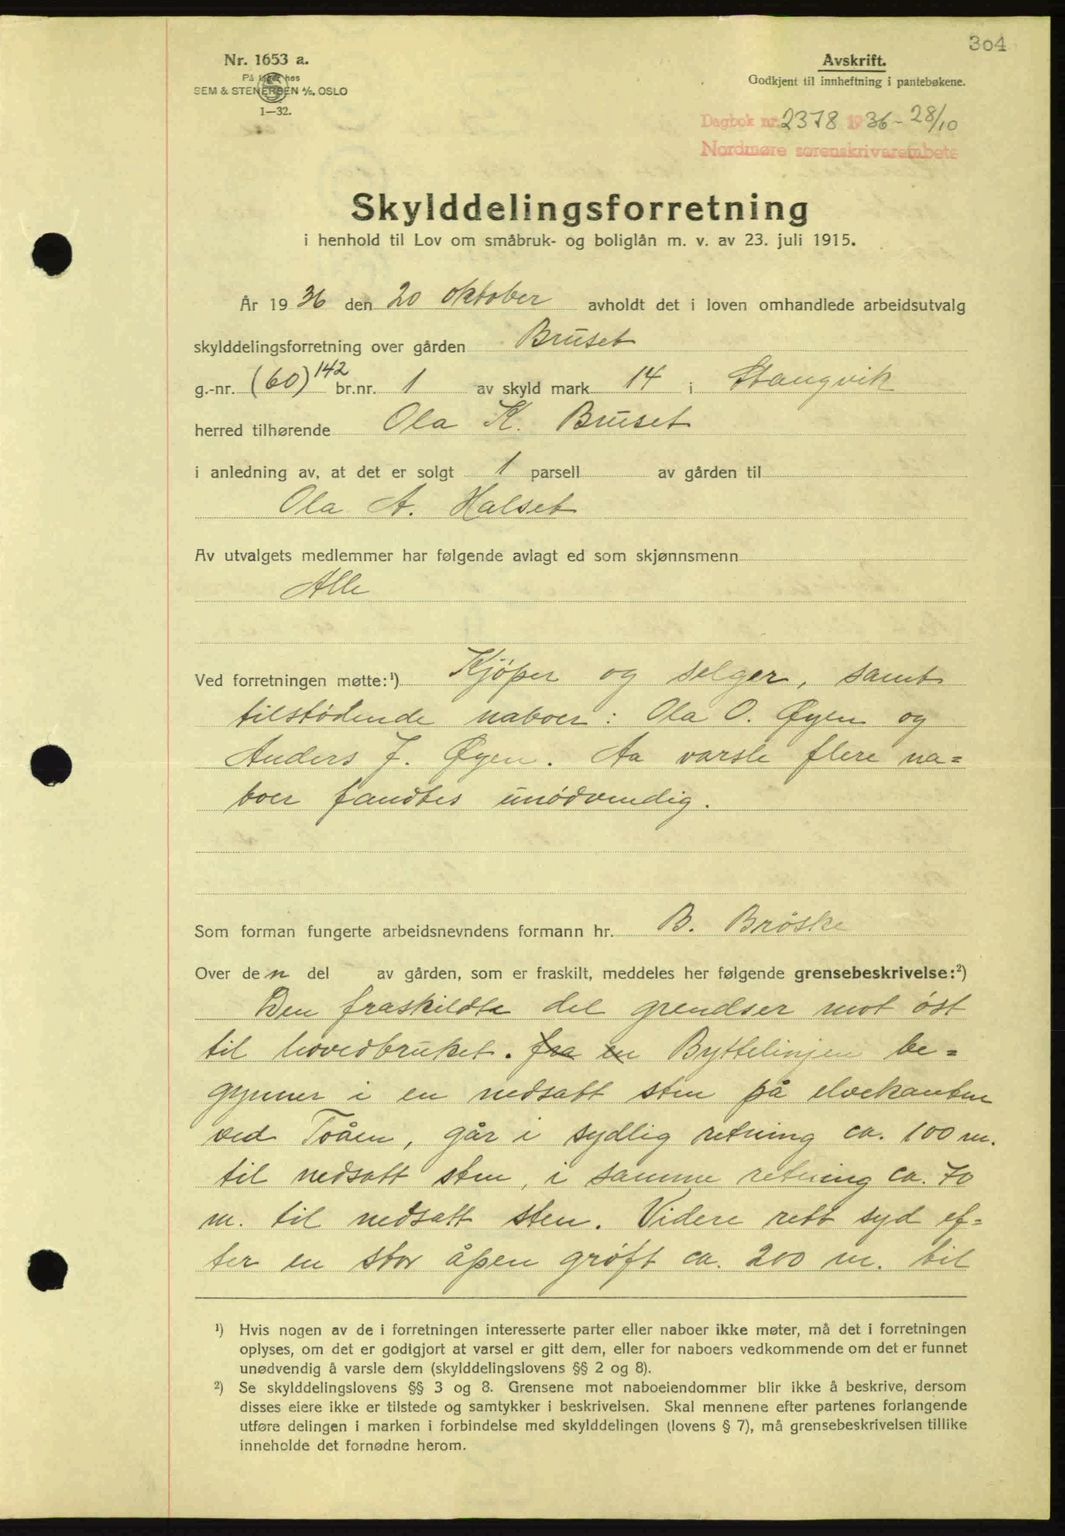 304
Nr. 1653 a.
På lager hos
SEM & STENERSEN A/S. OSLO
1—32.
Avskrift.
Godkjent til innheftning i pantebøkene.
Dagbok nr. 2378 1936 - 28/10
Nordmøre sorenskrivarembete
Skylddelingsforretning
i henhold til Lov om småbruk- og boliglån m. v. av 23. juli 1915.
År 1936 den 20 oktober avholdt det i loven omhandlede arbeidsutvalg
skylddelingsforretning over gården Bruset
g.-nr. (60) 142 br.nr. 1 av skyld mark 14 i Stangvik
herred tilhørende Ola K. Bruset
i anledning av, at det er solgt 1 parsell av gården til
Ola A. Halset
Av utvalgets medlemmer har følgende avlagt ed som skjønnsmenn
Alle
Ved forretningen møtte:¹) Kjøper og selger, samt
tilstødende naboer: Ola O. Øyen og
Anders J. Øyen. Aa varsle flere na=
boer fandtes unødvendig.
Som forman fungerte arbeidsnevndens formann hr. B. Brøske
Over den del av gården, som er fraskilt, meddeles her følgende grensebeskrivelse:²)
Den fraskildte del grendser mot øst
til hovedbruket. fra en Byttelinjen be=
gynner i en nedsatt sten på elvekanten
ved Toåen, går i sydlig retning ca. 100 m.
til nedsatt sten, i samme retning ca. 70
m. til nedsatt sten. Videre rett syd ef=
ter en stor åpen grøft ca. 200 m. til
¹) Hvis nogen av de i forretningen interesserte parter eller naboer ikke møter, må det i forretningen
oplyses, om det er godtgjort at varsel er gitt dem, eller for naboers vedkommende om det er funnet
unødvendig å varsle dem (skylddelingslovens §§ 2 og 8).
²) Se skylddelingslovens §§ 3 og 8. Grensene mot naboeiendommer blir ikke å beskrive, dersom
disses eiere ikke er tilstede og samtykker i beskrivelsen. Skal mennene efter partenes forlangende
utføre delingen i marken i forbindelse med skylddelingen (lovens § 7), må grensebeskrivelsen tillike
inneholde det fornødne herom.